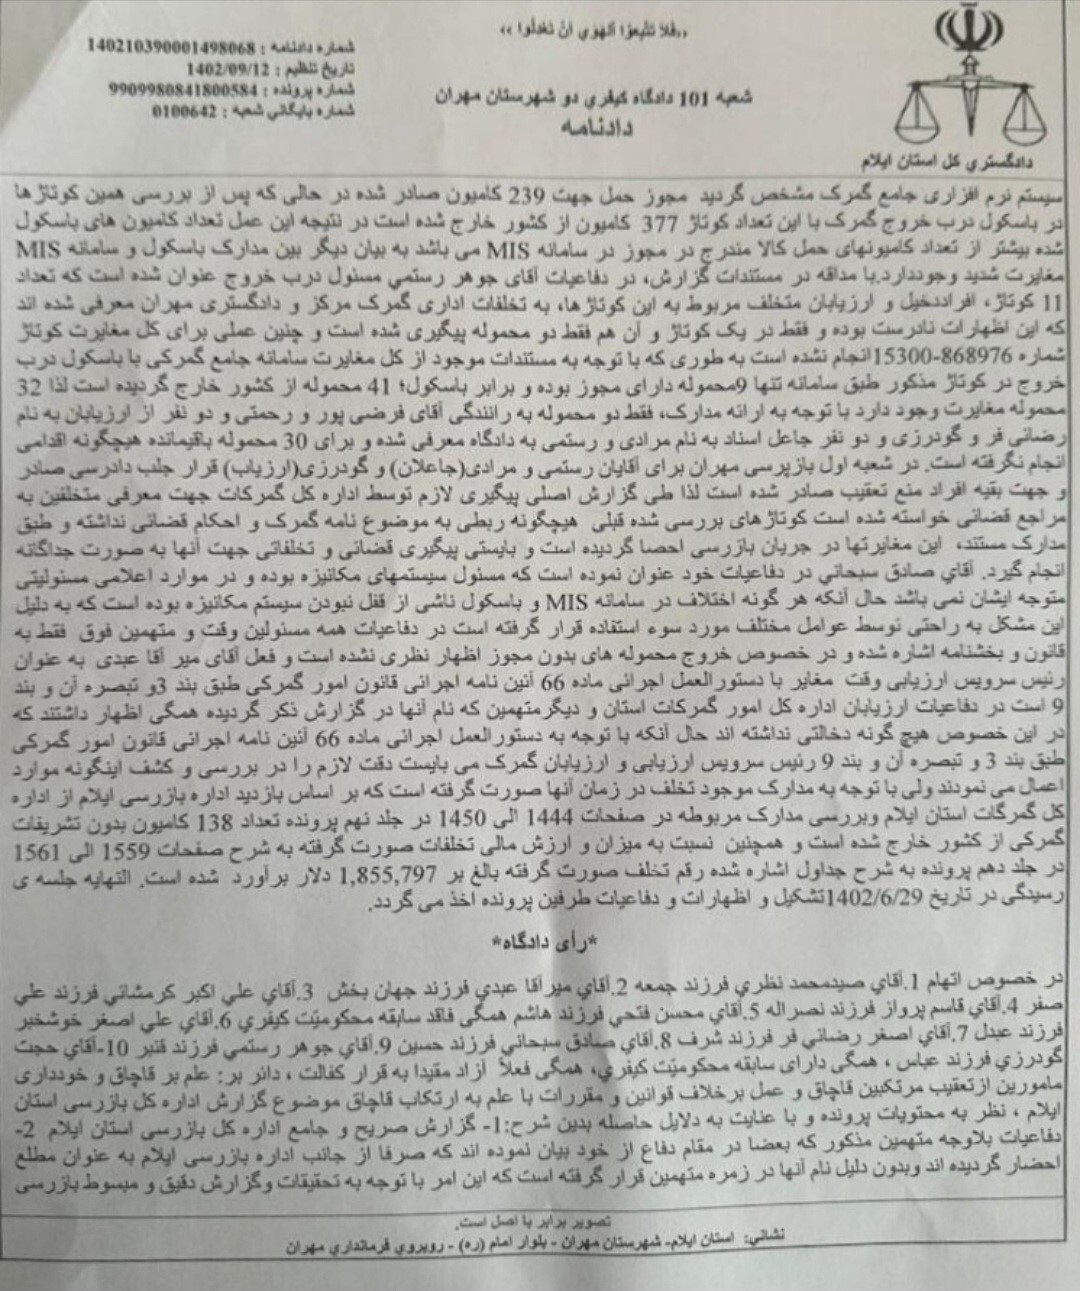 «فَلاَ تَتَّبِعُوا الْهَوَي أَنْ تَعْدِلُوا»
شماره دادنامه : 140210390001498068
تاریخ تنظیم : 1402/09/12
شماره پرونده : 9909980841800584
شماره بایگاني شعبه : 0100642
شعبه 101 دادگاه کیفري دو شهرستان مهران
دادنامه
دادگستري کل استان ایلام
سیستم نرم افزاری جامع گمرک مشخص گردید مجوز حمل جهت 239 کامیون صادر شده در حالی که پس از بررسی همین کوتاژ ها
در باسکول درب خروج گمرک با این تعداد کوتاژ 377 کامیون از کشور خارج شده است در نتیجه این عمل تعداد کامیون های باسکول
شده بیشتر از تعداد کامیونهای حمل کالا مندرج در مجوز در سامانه MIS می باشد به بیان دیگر بین مدارک باسکول و سامانه MIS
مغایرت شدید وجوددارد.با مداقه در مستندات گزارش، در دفاعیات آقای جوهر رستمي مسئول درب خروج عنوان شده است که تعداد
11 کوتاژ، افراددخیل و ارزیابان متخلف مربوط به این کوتاژها، به تخلفات اداری گمرک مرکز و دادگستری مهران معرفی شده اند
که این اظهارات نادرست بوده و فقط در یک کوتاژ و آن هم فقط دو محموله پیگیری شده است و چنین عملی برای کل مغایرت کوتاژ
شماره 868976-15300انجام نشده است به طوری که با توجه به مستندات موجود از کل مغایرت سامانه جامع گمرکی با باسکول درب
خروج در کوتاژ مذکور طبق سامانه تنها 9محموله دارای مجوز بوده و برابر باسکول؛ 41 محموله از کشور خارج گردیده است لذا 32
محموله مغایرت وجود دارد با توجه به ارائه مدارک، فقط دو محموله به رانندگی آقای فرضی پور و رحمتی و دو نفر از ارزیابان به نام
رضائی فر و گودرزی و دو نفر جاعل اسناد به نام مرادی و رستمی به دادگاه معرفی شده و برای 30 محموله باقیمانده هیچگونه اقدامی
انجام نگرفته است. در شعبه اول بازپرسی مهران برای آقایان رستمی و مرادی(جاعلان) و گودرزی(ارزیاب) قرار جلب دادرسی صادر
و جهت بقیه افراد منع تعقیب صادر شده است لذا طی گزارش اصلی پیگیری لازم توسط اداره کل گمرکات جهت معرفی متخلفین به
مراجع قضائی خواسته شده است کوتاژهای بررسی شده قبلی هیچگونه ربطی به موضوع نامه گمرک و احکام قضائی نداشته و طبق
مدارک مستند، این مغایرتها در جریان بازرسی احصا گردیده است و بایستی پیگیری قضائی و تخلفاتی جهت آنها به صورت جداگانه
انجام گیرد. آقاي صادق سبحاني در دفاعیات خود عنوان نموده است که مسئول سیستمهای مکانیزه بوده و در موارد اعلامی مسئولیتی
متوجه ایشان نمی باشد حال آنکه هر گونه اختلاف در سامانه MIS و باسکول ناشی از قفل نبودن سیستم مکانیزه بوده است که به دلیل
این مشکل به راحتی توسط عوامل مختلف مورد سوء استفاده قرار گرفته است در دفاعیات همه مسئولین وقت و متهمین فوق فقط به
قانون و بخشنامه اشاره شده و در خصوص خروج محموله های بدون مجوز اظهار نظری نشده است و فعل آقای میر آقا عبدی به عنوان
رئیس سرویس ارزیابی وقت مغایر با دستورالعمل اجرائی ماده 66 آئین نامه اجرائی قانون امور گمرکی طبق بند 3و تبصره آن و بند
9 است در دفاعیات ارزیابان اداره کل امور گمرکات استان و دیگرمتهمین که نام آنها در گزارش ذکر گردیده همگی اظهار داشتند که
در این خصوص هیچ گونه دخالتی نداشته اند حال آنکه با توجه به دستورالعمل اجرائی ماده 66 آئین نامه اجرائی قانون امور گمرکی
طبق بند 3 و تبصره آن و بند 9 رئیس سرویس ارزیابی و ارزیابان گمرک می بایست دقت لازم را در بررسی و کشف اینگونه موارد
اعمال می نمودند ولی با توجه به مدارک موجود تخلف در زمان آنها صورت گرفته است که بر اساس بازدید اداره بازرسی ایلام از اداره
کل گمرگات استان ایلام وبررسی مدارک مربوطه در صفحات 1444 الی 1450 در جلد نهم پرونده تعداد 138 کامیون بدون تشریفات
گمرکی از کشور خارج شده است و همچنین نسبت به میزان و ارزش مالی تخلفات صورت گرفته به شرح صفحات 1559 الی 1561
در جلد دهم پرونده به شرح جداول اشاره شده رقم تخلف صورت گرفته بالغ بر 1,855,797 دلار برآورد شده است. النهایه جلسه ی
رسیدگی در تاریخ 1402/6/29تشکیل و اظهارات و دفاعیات طرفین پرونده اخذ می گردد.
*رأی دادگاه*
در خصوص اتهام 1.آقاي صیدمحمد نظري فرزند جمعه 2.آقاي میرآقا عبدي فرزند جهان بخش 3.آقاي علي اکبر کرمشائي فرزند علي
صفر 4.آقاي قاسم پرواز فرزند نصراله 5.آقاي محسن فتحي فرزند هاشم همگی فاقد سابقه محکومیّت کیفري 6.آقاي علي اصغر خوشخبر
فرزند عبدل 7.آقاي اصغر رضائي فر فرزند شرف 8.آقاي صادق سبحاني فرزند حسین 9.آقاي جوهر رستمي فرزند قنبر 10-آقاي حجت
گودرزي فرزند عباس ، همگی دارای سابقه محکومیّت کیفري، همگی فعلاً آزاد مقیدا به قرار کفالت ، دائر بر: علم بر قاچاق و خودداری
مامورین ازتعقیب مرتکبین قاچاق و عمل برخلاف قوانین و مقررات با علم به ارتکاب قاچاق موضوع گزارش اداره کل بازرسی استان
ایلام ، نظر به محتویات پرونده و با عنایت به دلایل حاصله بدین شرح:1- گزارش صریح و جامع اداره کل بازرسی استان ایلام 2-
دفاعیات بلاوجه متهمین مذکور که بعضا در مقام دفاع از خود بیان نموده اند که صرفا از جانب اداره بازرسی ایلام به عنوان مطلع
احضار گردیده اند وبدون دلیل نام آنها در زمره متهمین قرار گرفته است که این امر با توجه به تحقیقات وگزارش دقیق و مبسوط بازرسی
تصویر برابر با اصل است.
نشاني: استان ایلام- شهرستان مهران - بلوار امام (ره) - روبروي فرمانداري مهران